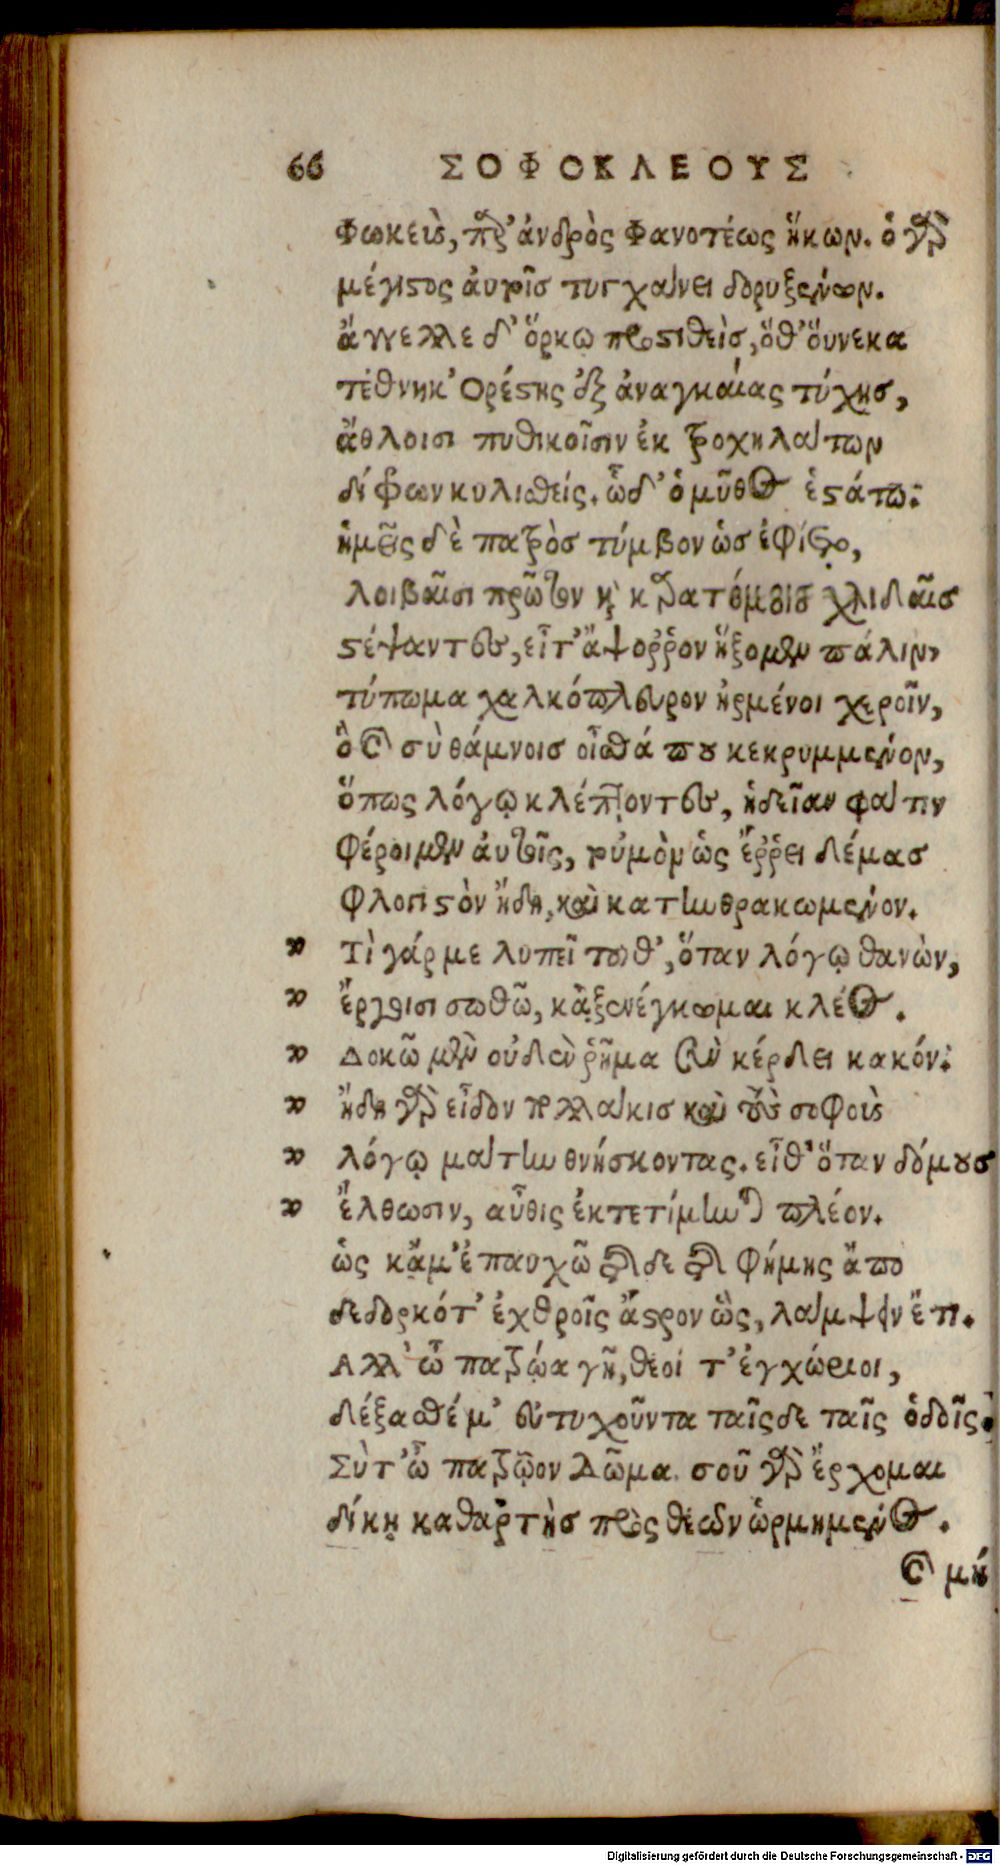 66 ΣΟΦΟΚΛΕΟΥΣ
Φωκεὺς, παρ' ἀνδρὸς Φανοτέως ἥκων. ὁ γὰρ
μέγιστος ἀυτοῖσ τυγχάνει δορυξένων.
ἄγγελλε δ' ὅρκῳ προστιθεὶσ, ὅθ' ὅυνεκα
τέθνηκ' Ορέστης ἐξ ἀναγκαίας τύχησ,
ἄθλοισι πυθικοῖσιν ἐκ τροχηλάτων
δίφρων κυλισθείς. ὧδ' ὁ μῦθος ἑστάτω:
ἡμεῖς δὲ πατρὸσ τύμβον ὡσ ἐφίετο,
λοιβαῖσι πρῶτον καὶ καρατόμοισ χλιδαῖσ
στέψαντες, εἶτ' ἄψοῤῥον ἥξομεν πάλιν,
τύπωμα χαλκόπλευρον ἠρμένοι χεροῖν,
ὃ καὶ σὺ θάμνοισ οἶσθά που κεκρυμμένον,
ὅπως λόγῳ κλέπτοντες, ἡδεῖαν φάτιν
φέροιμεν ἀυτοῖς, τοὐμὸν ὡς ἔῤῥει δέμασ
φλογιστὸν ἤδη, καὶ κατηνθρακωμένον.
Τὶ γάρ με λυπεῖ τοῦθ', ὅταν λόγῳ θανὼν,
ἔργοισι σωθῶ, κᾀξενέγκωμαι κλέος.
Δοκῶ μὲν οὐδὲν ῥῆμα σὺν κέρδει κακόν:
ἤδη γὰρ εἶδον πολλάκισ καὶ τοὺς σοφοὺς
λόγῳ μάτην θνήσκοντας. εἶθ' ὅταν δόμους
ἔλθωσιν, αὖθις ἐκτετίμηνται πλέον.
ὡς κἄμ' ἐπαυχῶ τῆσδε τῆς φήμης ἄπο
δεδορκότ' ἐχθροῖς ἄστρον ὣς, λάμψειν ἔτι.
Αλλ' ὦ πατρῴα γῆ, θεοί τ' ἐγχώριοι,
δέξασθέ μ' εὐτυχοῦντα ταῖςδε ταῖς ὁδοῖς.
Σύ τ' ὦ πατρῷον Δῶμα. σοῦ γὰρ ἔρχομαι
δίκῃ καθαρτὴσ πρὸς θεῶν ὡρμημένος.
καὶ μή
Digitalisierung gefördert durch die Deutsche Forschungsgemeinschaft - DFG